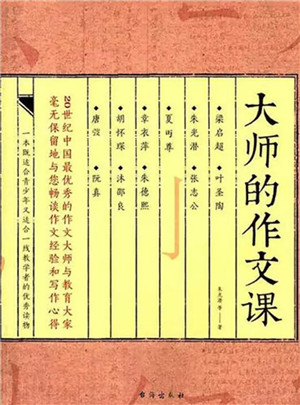 大师的作文课
朱光潜 等——著
•梁启超 •叶圣陶
•朱光潜 •张志公
•夏丏尊
•章衣萍 •朱德熙
•胡怀琛 •沐邵良
•唐弢 •阮真
20世纪中国最优秀的作文大师与教育大家
毫无保留地与您畅谈作文经验和写作心得
一本既适合青少年又适合一线教学者的优秀读物
台海出版社